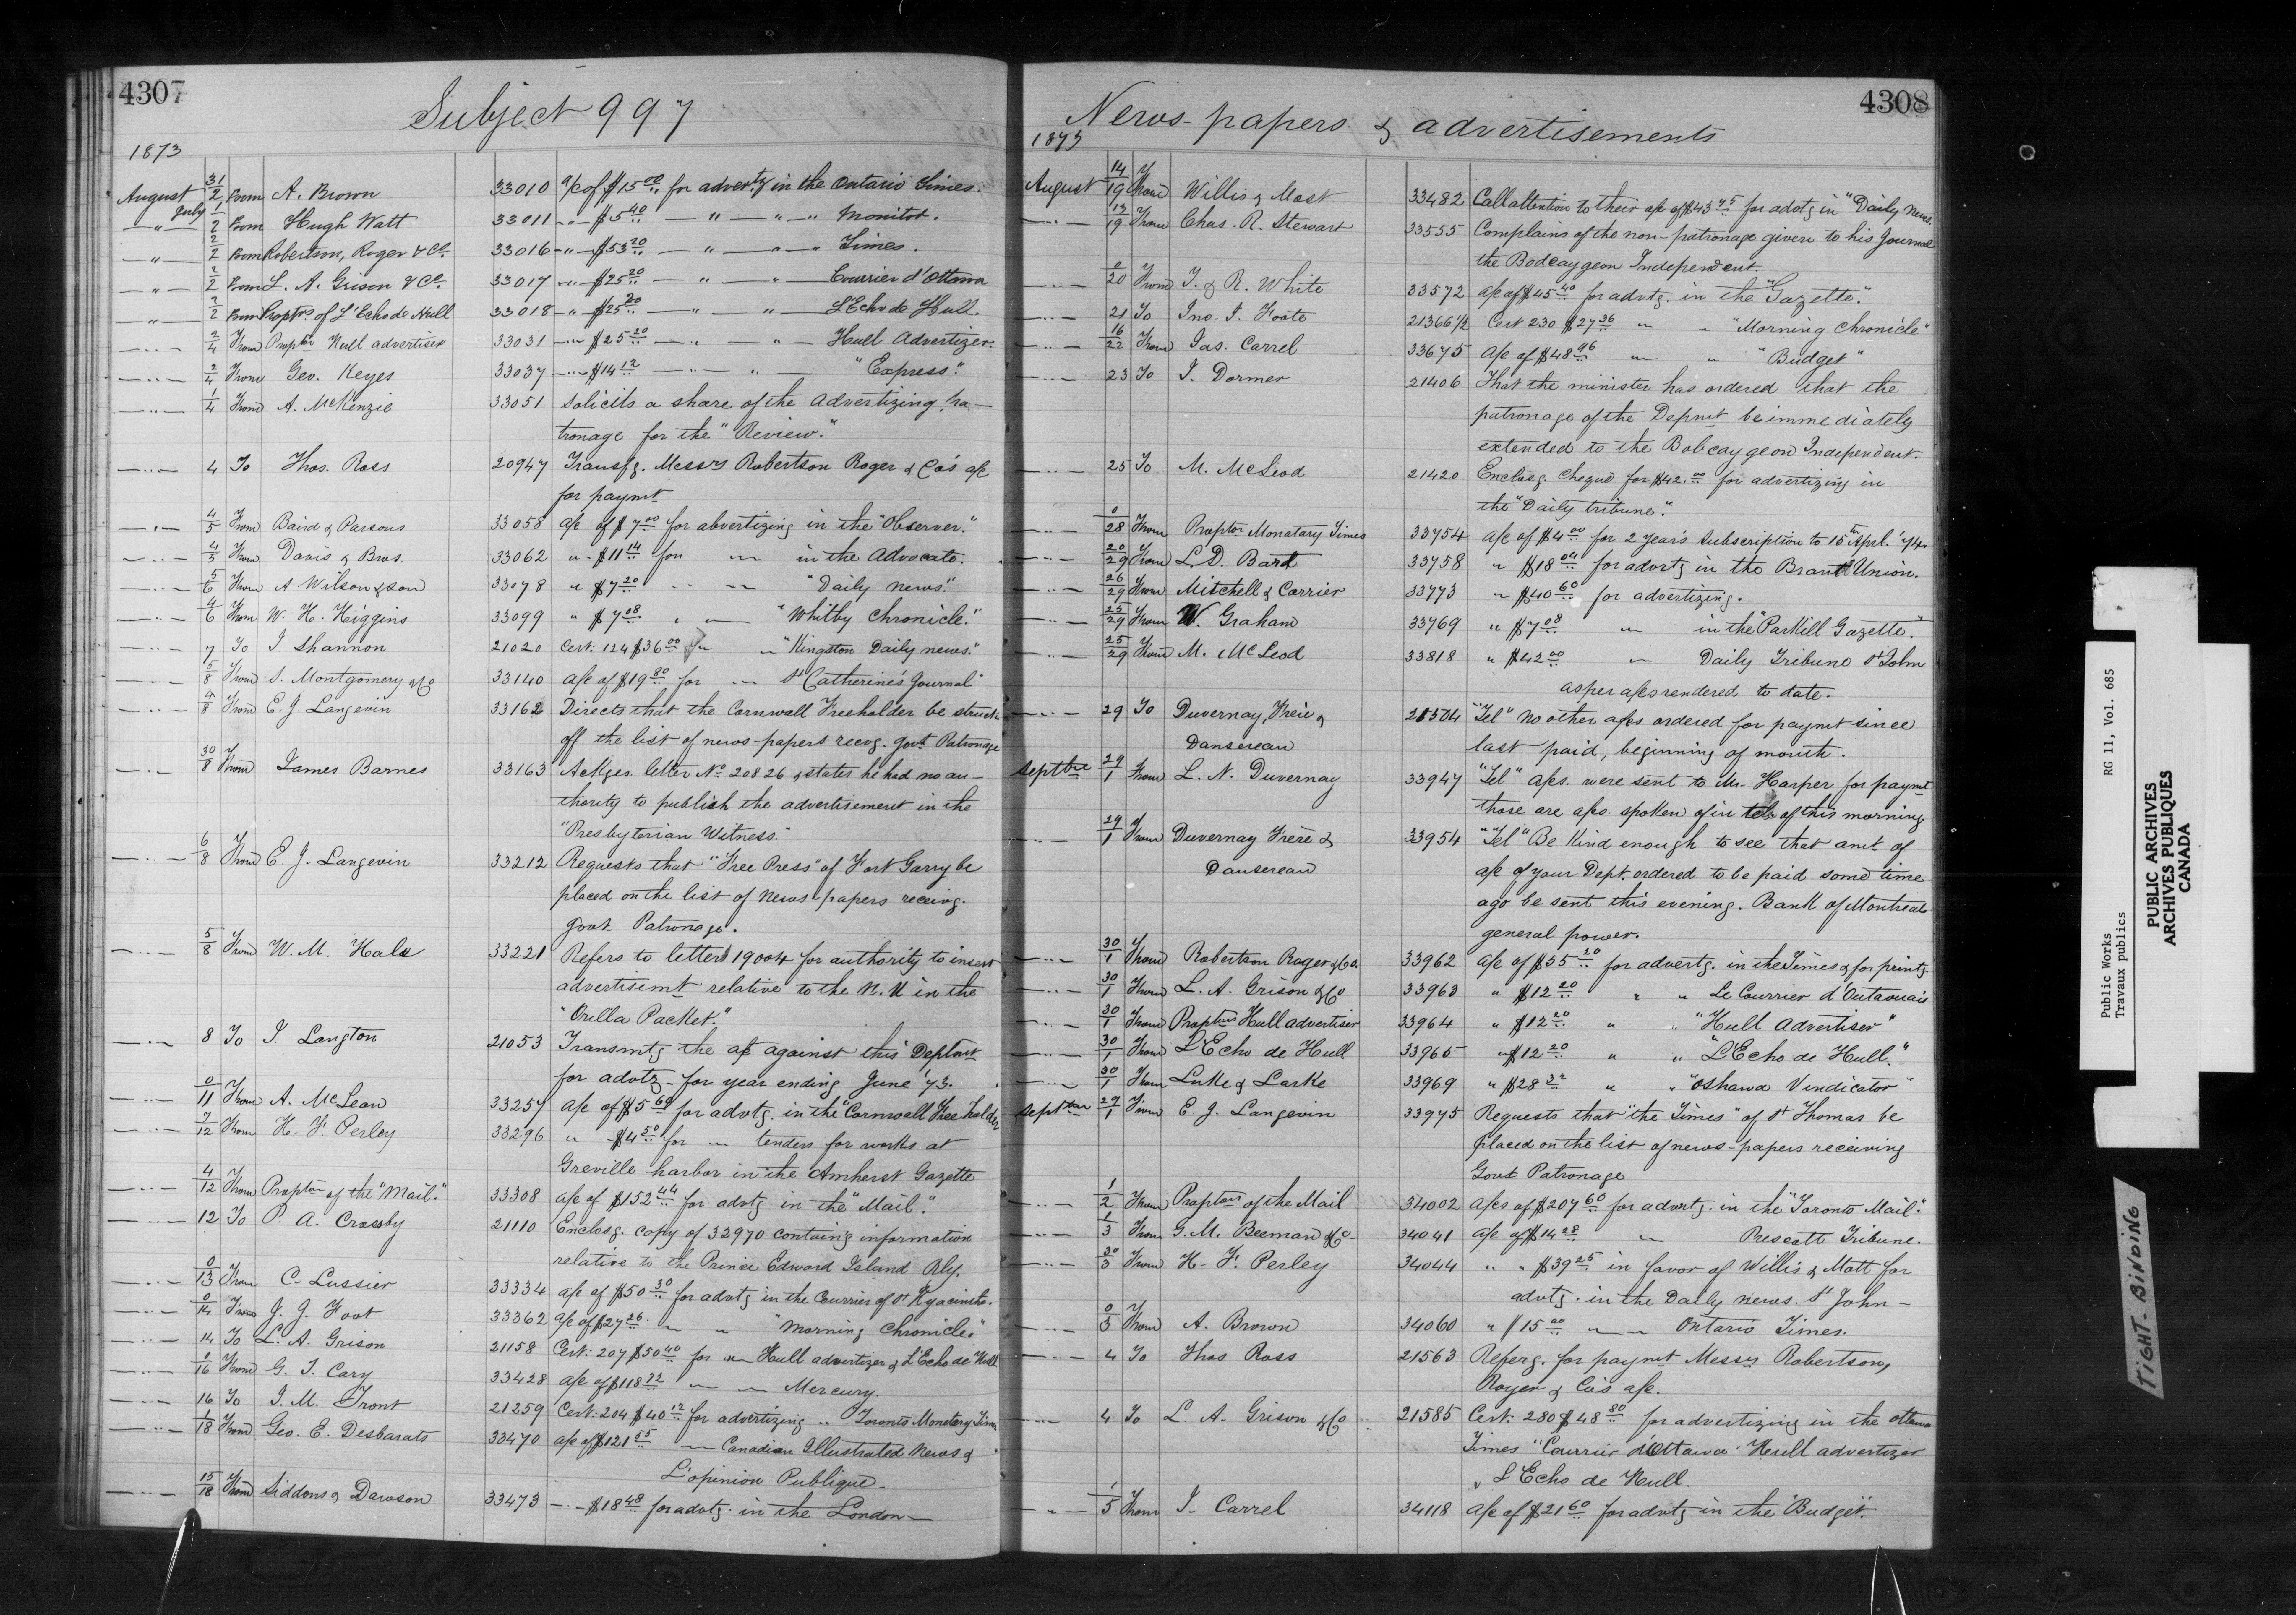 4307
Subject 997
1873
August 31/2 From A. Brown 33010 a/c of $15.00 for advertg in the Ontario Times.
July
" 1/2 From Hugh Watt 33011 " " $5.40 — " — " — " Monitor.
" 2/2 From Robertson, Roger & Co. 33016 " — $53.20 — " — " — Times.
" 2/2 From L. A. Grison & Co. 33017 " — $25.20 — " — " — Courrier d'Ottawa
" 2/2 From Proptrs of L'Echo de Hull 33018 — " — $25.20 — " — " — L'Echo de Hull.
" 2/4 From Proptor Hull advertiser 33031 — " — $25.20 — " — " — Hull Advertizer.
" 2/4 From Geo. Keyes 33037 — " — $14.12 — " — " — "Express."
" 1/4 From A. McKenzie 33051 Solicits a share of the Advertizing pa-
tronage for the "Review."
" 4 To Thos. Ross 20947 Transfg. Messrs Robertson Roger & Co's a/c
for paymt
" 4/5 From Baird & Parsons 33058 a/c of $7.00 for abvertizing in the "Observer."
" 4/5 From Davis & Bros. 33062 " " $11.14 for " in the Advocate.
" 5/6 From A Wilson & son 33078 " $7.20 " " "Daily news."
" 4/6 From W. H. Higgins 33099 " $7.08 " " "Whitby Chronicle."
" 7 To J. Shannon 21020 Cert. 124 $36.00 for " "Kingston Daily news."
" 5/8 From S. Montgomery & Co 33140 a/c of $19.80 for " St Catherine's Journal
" 4/8 From E. J. Langevin 33162 Directs that the Cornwall Freeholder be struck
off the list of news-papers recvg. govt. Patronage
" 30/8 From James Barnes 33163 Ackges. letter No 20826 & states he had no au-
thority to publish the advertisement in the
"Presbyterian Witness."
" 6/8 From E. J. Langevin 33212 Requests that "Free Press" of Fort Garry be
placed on the list of news-papers receivg.
govt. Patronage.
" 5/8 From W. M. Hale 33221 Refers to letter 19004 for authority to insert
advertisemt relative to the N. W in the
"Orilla Packet."
" 8 To J. Langton 21053 Transmtg the a/c against this Deptmt
for advtg - for year ending June '73.
" 0/11 From A. McLean 33257 a/c of $5.60 for advtg. in the "Cornwall Free holder
" 7/12 From H. F. Perley 33296 " $4.50 for " tenders for works at
Greville harbor in the Amherst Gazette
" 4/12 From Proptor of the "Mail." 33308 a/c of $152.44 for advtg in the "Mail".
" 12 To P. A. Crossby 21110 Enclosg. copy of 32970 containg information
relative to the Prince Edward Island Rly.
" 0/13 From C. Lussier 33334 a/c of $50.30 for advtg in the Courrier of St Hyacinthe.
" 0/14 From J. J. Foot 33362 a/c of $27.26 " " "Morning Chronicle"
" 14 To L. A. Grison 21158 Cert. 207 $50.40 for " Hull advertizer & L'Echo de Hull
" 0/16 From G. T. Cary 33428 a/c of $118.72 " " Mercury.
" 16 To J. M. Tront 21259 Cert. 204 $40.12 for advertizing " Toronto Monetary Times
" 1/18 From Geo. E. Desbarats 33470 a/c of $121.55 " Canadian Illustrated News &
L'opinion Publique.
" 15/18 From Siddons & Dawson 33473 " $18.48 for advtg. in the London
4308
News-papers & advertisements
1873
August 14/19 From Willis & Most 33482 Call attention to their a/c of $43.75 for advtg in "Daily News.
" 13/19 From Chas. R. Stewart 33555 Complains of the non-patronage given to his Journal
the Bobcaygeon Independent.
" 0/20 From T. & R. White 33572 a/c of $45.40 for advtg. in the "Gazette."
" 21 To Jno. J. Foote 21366 1/2 Cert 230 $27.36 " " "Morning Chronicle"
" 16/22 From Jas. Carrel 33675 a/c of $48.96 " " "Budget"
" 23 To J. Dormer 21406 That the minister has ordered that the
patronage of the Depmt be immediately
extended to the Bobcaygeon Independent.
" 25 To M. McLeod 21420 Enclosg. Cheque for $42.00 for advertizing in
the "Daily tribune."
" 0/28 From Proptor Monatary Times 33754 a/c of $4.00 for 2 year's Subscription to 15th Aprl. '74.
" 20/29 From L. D. Bard 33758 " $18.04 for advrtg in the Brant Union.
" 26/29 From Mitchell & Carrier 33773 " $40.60 for advertizing.
" 25/29 From W. Graham 33769 " $7.08 " in the "Parkill Gazette."
" 25/29 From M. McLeod 33818 " $42.00 " Daily Tribune St John
as per a/cs rendered to date.
" 29 To Duvernay, Freie & 21504 "Tel" No other a/cs ordered for paymt since
Dansereau last paid, beginning of month.
Septbre 29/1 From L. N. Duvernay 33947 "Tel" a/cs. were sent to Mr. Harper for paymt
those are a/cs. spoken of in tel. of this morning
" 29/1 From Duvernay Frère & 33954 "Tel" Be kind enough to see that amt of
Dansereau a/c of your Dept. ordered to be paid some time
ago be sent this evening. Bank of Montreal
general power.
" 30/1 From Robertson Roger & Co. 33962 a/c of $55.20 for advertg. in the Times & for printg.
" 30/1 From L. A. Grison & Co 33963 " $12.20 " " Le Courrier d'Outaouais
" 30/1 From Proptors Hull advertiser 33964 " $12.20 " " "Hull advertiser"
" 30/1 From L'Echo de Hull 33965 " $12.20 " " "L'Echo de Hull."
" 30/1 From Luke & Larke 33969 " $28.32 " " "Oshawa Vindicator"
Septbre 29/1 From E. J. Langevin 33975 Requests that "the Times" of St Thomas be
placed on the list of news-papers receiving
Govt Patronage
" 1/2 From Proptors of the Mail 34002 a/cs of $207.60 for advrtg. in the "Toronto Mail."
" 1/3 From G. M. Beeman & Co 34041 a/c of $14.28 " Prescott Tribune.
" 30/3 From H. F. Perley 34044 " " $39.25 in favor of Willis & Mott for
advtg. in the Daily news. St John -
" 0/3 From A. Brown 34060 " $15.00 " " Ontario Times.
" 4 To Thos Ross 21563 Referg. for paymt Messrs Robertson,
Royer & Co's a/c.
" 4 To L. A. Grison & Co 21585 Cert. 280 $48.80 for advertizing in the Ottawa
Times "Courrier d'Ottawa" Hull advertizer
" L'Echo de Hull.
" 1/5 From J. Carrel 34118 a/c of $21.60 for advtg in the "Budget".
Public Works RG 11, Vol. 685
Travaux publics
PUBLIC ARCHIVES
ARCHIVES PUBLIQUES
CANADA
TIGHT-BINDING